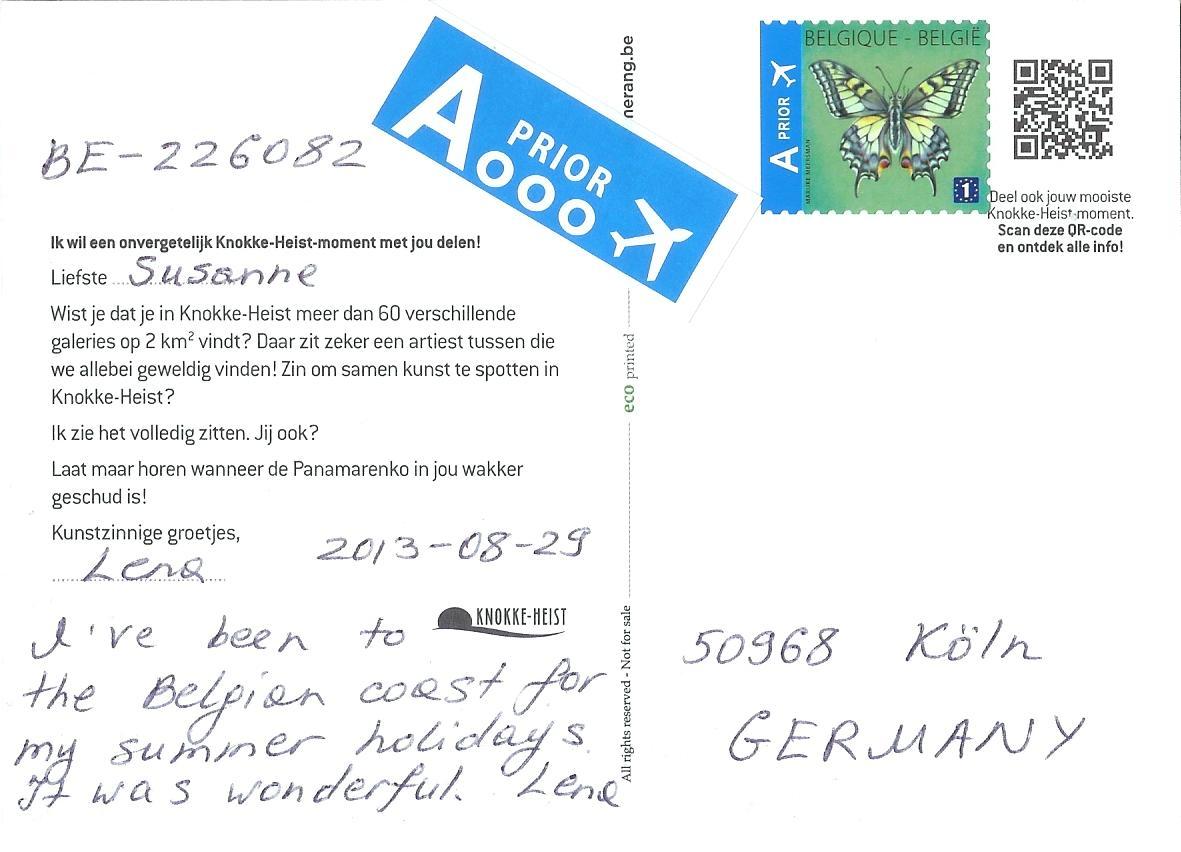 BE-226082
A PRIOR
Aooo
Ik wil een onvergetelijk Knokke-Heist-moment met jou delen!
Liefste Susanne
Wist je dat je in Knokke-Heist meer dan 60 verschillende
galeries op 2 km² vindt? Daar zit zeker een artiest tussen die
we allebei geweldig vinden! Zin om samen kunst te spotten in
Knokke-Heist?
Ik zie het volledig zitten. Jij ook?
Laat maar horen wanneer de Panamarenko in jou wakker
geschud is!
Kunstzinnige groetjes,
Lena 2013-08-29
KNOKKE-HEIST
I've been to
the Belgian coast for
my summer holidays.
It was wonderful. Lena
nerang.be
eco printed
All rights reserved - Not for sale
BELGIQUE - BELGIË
A PRIOR
MARIJKE MEERSMAN
1
Deel ook jouw mooiste
Knokke-Heist-moment.
Scan deze QR-code
en ontdek alle info!
50968 Köln
GERMANY